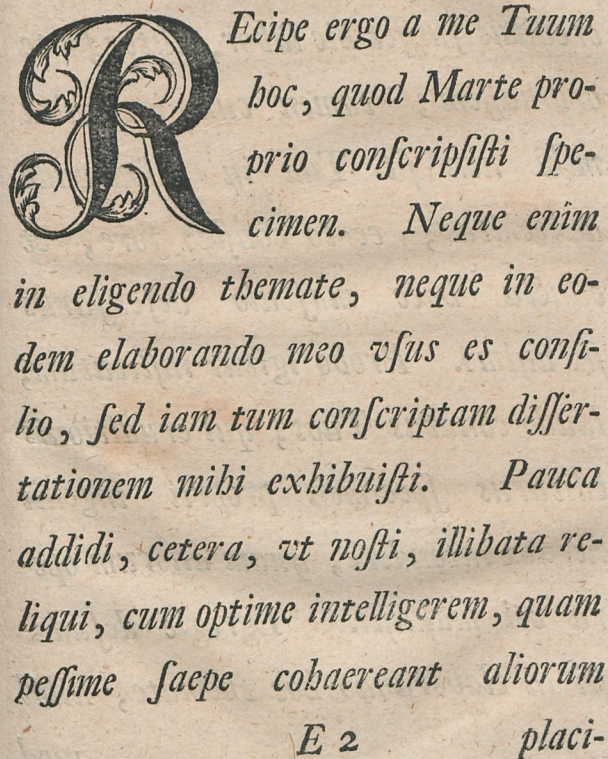 REcipe ergo a me Tuum
hoc, quod Marte pro-
prio conſcripſiſti ſpe-
cimen. Neque enim
in eligendo themate, neque in eo-
dem elaborando meo vſus es conſi-
lio, ſed iam tum conſcriptam diſſer-
tationem mihi exhibuiſti. Pauca
addidi, cetera, vt noſti, illibata re-
liqui, cum optime intelligerem, quam
peſſime ſaepe cohaereant aliorum
E 2 placi-